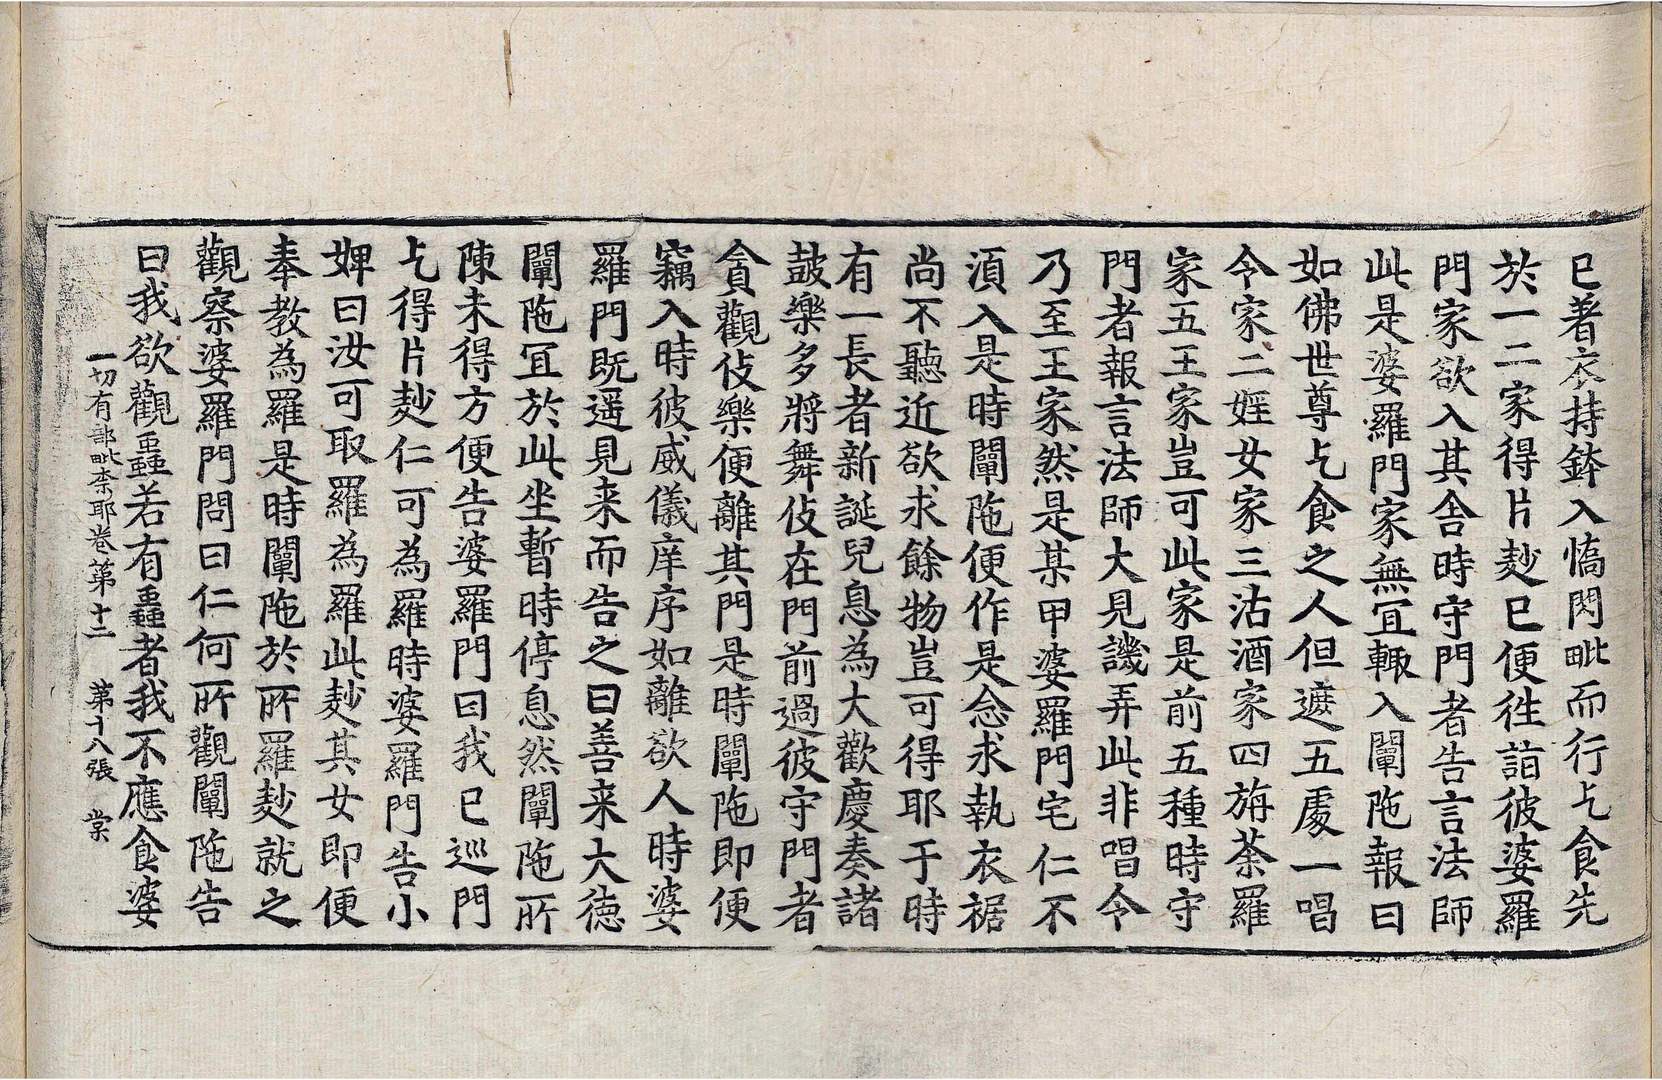 已著衣持鉢入憍閃毗而行乞食先
於一二家得片麨已便往詣彼婆羅
門家欲入其舍時守門者告言法師
此是婆羅門家無冝輙入闡陁報曰
如佛世尊乞食之人但遮五處一唱
令家二婬女家三沽酒家四旃荼羅
家五王家豈可此家是前五種時守
門者報言法師大見譏弄此非唱令
乃至王家然是某甲婆羅門宅仁不
湏入是時闡陁便作是念求執衣裾
尚不聽近欲求餘物豈可得耶于時
有一長者新誕兒息為大歡慶奏諸
鼓樂多將舞伎在門前過彼守門者
貪觀伎樂便離其門是時闡陁即便
竊入時彼威儀庠序如離欲人時婆
羅門既遥見来而告之曰善来大德
闡陁冝於此坐暫時停息然闡陁所
陳未得方便告婆羅門曰我已巡門
乞得片麨仁可為羅時婆羅門告小
婢曰汝可取羅為羅此麨其女即便
奉教為羅是時闡陁於所羅麨就之
觀察婆羅門問曰仁何所觀闡陁告
曰我欲觀蟲若有蟲者我不應食婆
一切有部毗柰耶卷第十二　第十八張　棠